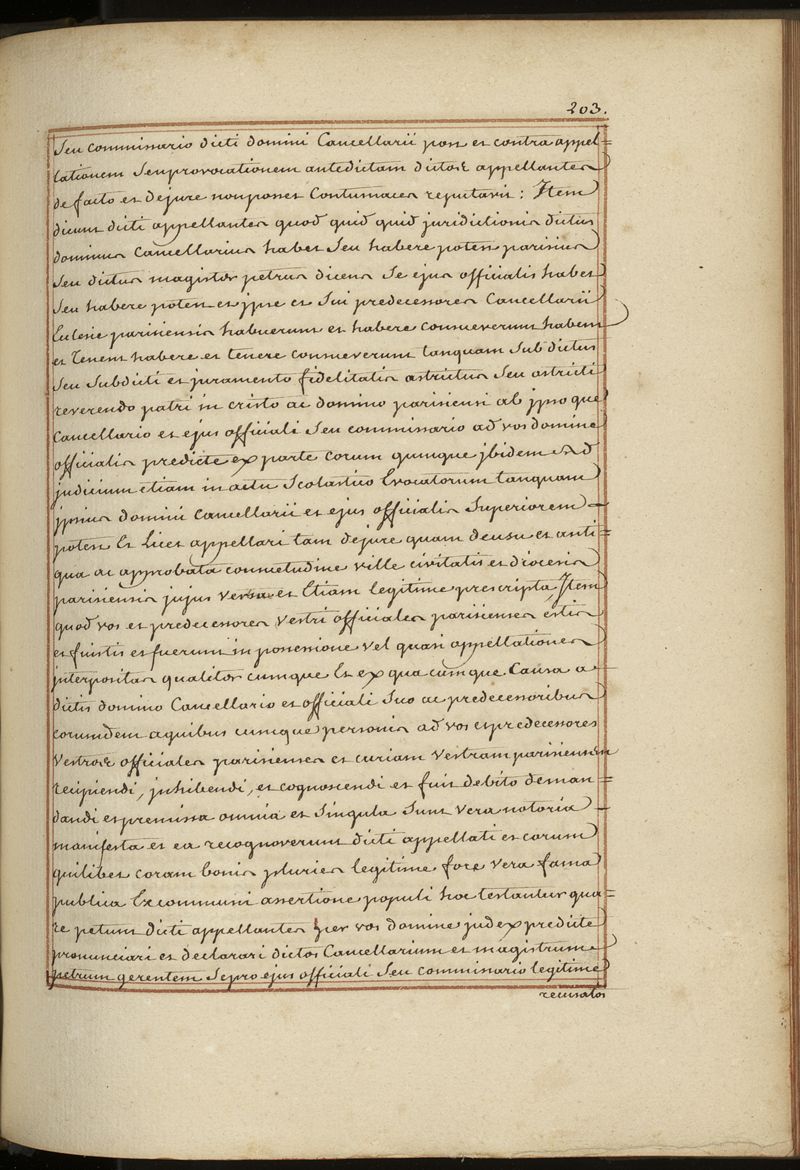 203.
Seu commissario dicti domini Cancellarii post et contra appel=
lationem Seu provocationem antedictam dictos appellantes
de facto et de jure non posset Contumaces reputavit: Item
dicunt dicti appellantes quod quid quid juridictionis dictus
dominus Cancellarius habet Seu habere potest parisius
Seu dictus magister petrus dicens Se ejus officialis habet
Seu habere potest et ipse et Sui predecessores Cancellarii
Ecclesie parisiensis habuerunt et habere consueverunt habent
et tenent habere et tenere consueverunt tanquam Subdictus
Seu Subdicti et juramento fidelitatis astrictus Seu astricti
reverendo patri in cristo ac domino parisiensi ab ipso que
Cancellario et ejus officiali Seu commissario ad vos domine
officialis predicte ex parte eorum quinque jbidem Ad
judicium etiam in actu Scolastico Evocatorum tanquam
jpsius domini Cancellarii et ejus officialis Superiorem
potest Et Licet appellari tam de jure quam de usu et anti=
qua ac approbata consuetudine ville civitatis et diocesis
parisiensis jujus versa et Etiam legitime prescripta, Item
quod vos et predecessores vestri officiales parisienses estis
et fuistis et fuerunt in possessione vel quasi appellationes
interpositas qualiter cumque Et ex qua cumque Causa a
dictis domino Cancellario et officiali Suo ac predecessoribus
eorumdem a quibus cumque personis ad vos et predecessores
vestros officiales parisienses et curiam vestram parisiensem
recipiendi, juhibendi, et cognoscendi et fuis debito deman=
dandi et premissa omnia et Singula Sunt vera notoria
manifesta et ea recognoverunt dicti appellati et eorum
quilibet coram bonis pluries legitime fore vera fama
publica Ex communi assertione populi hoc testantur qua=
re petunt dicti appellantes per vos domine judex predicte
pronunciari et declarari dictos Cancellarium et magistrum
petrum gerentem Se pro ejus officiali Seu commissario legitime
recusatos